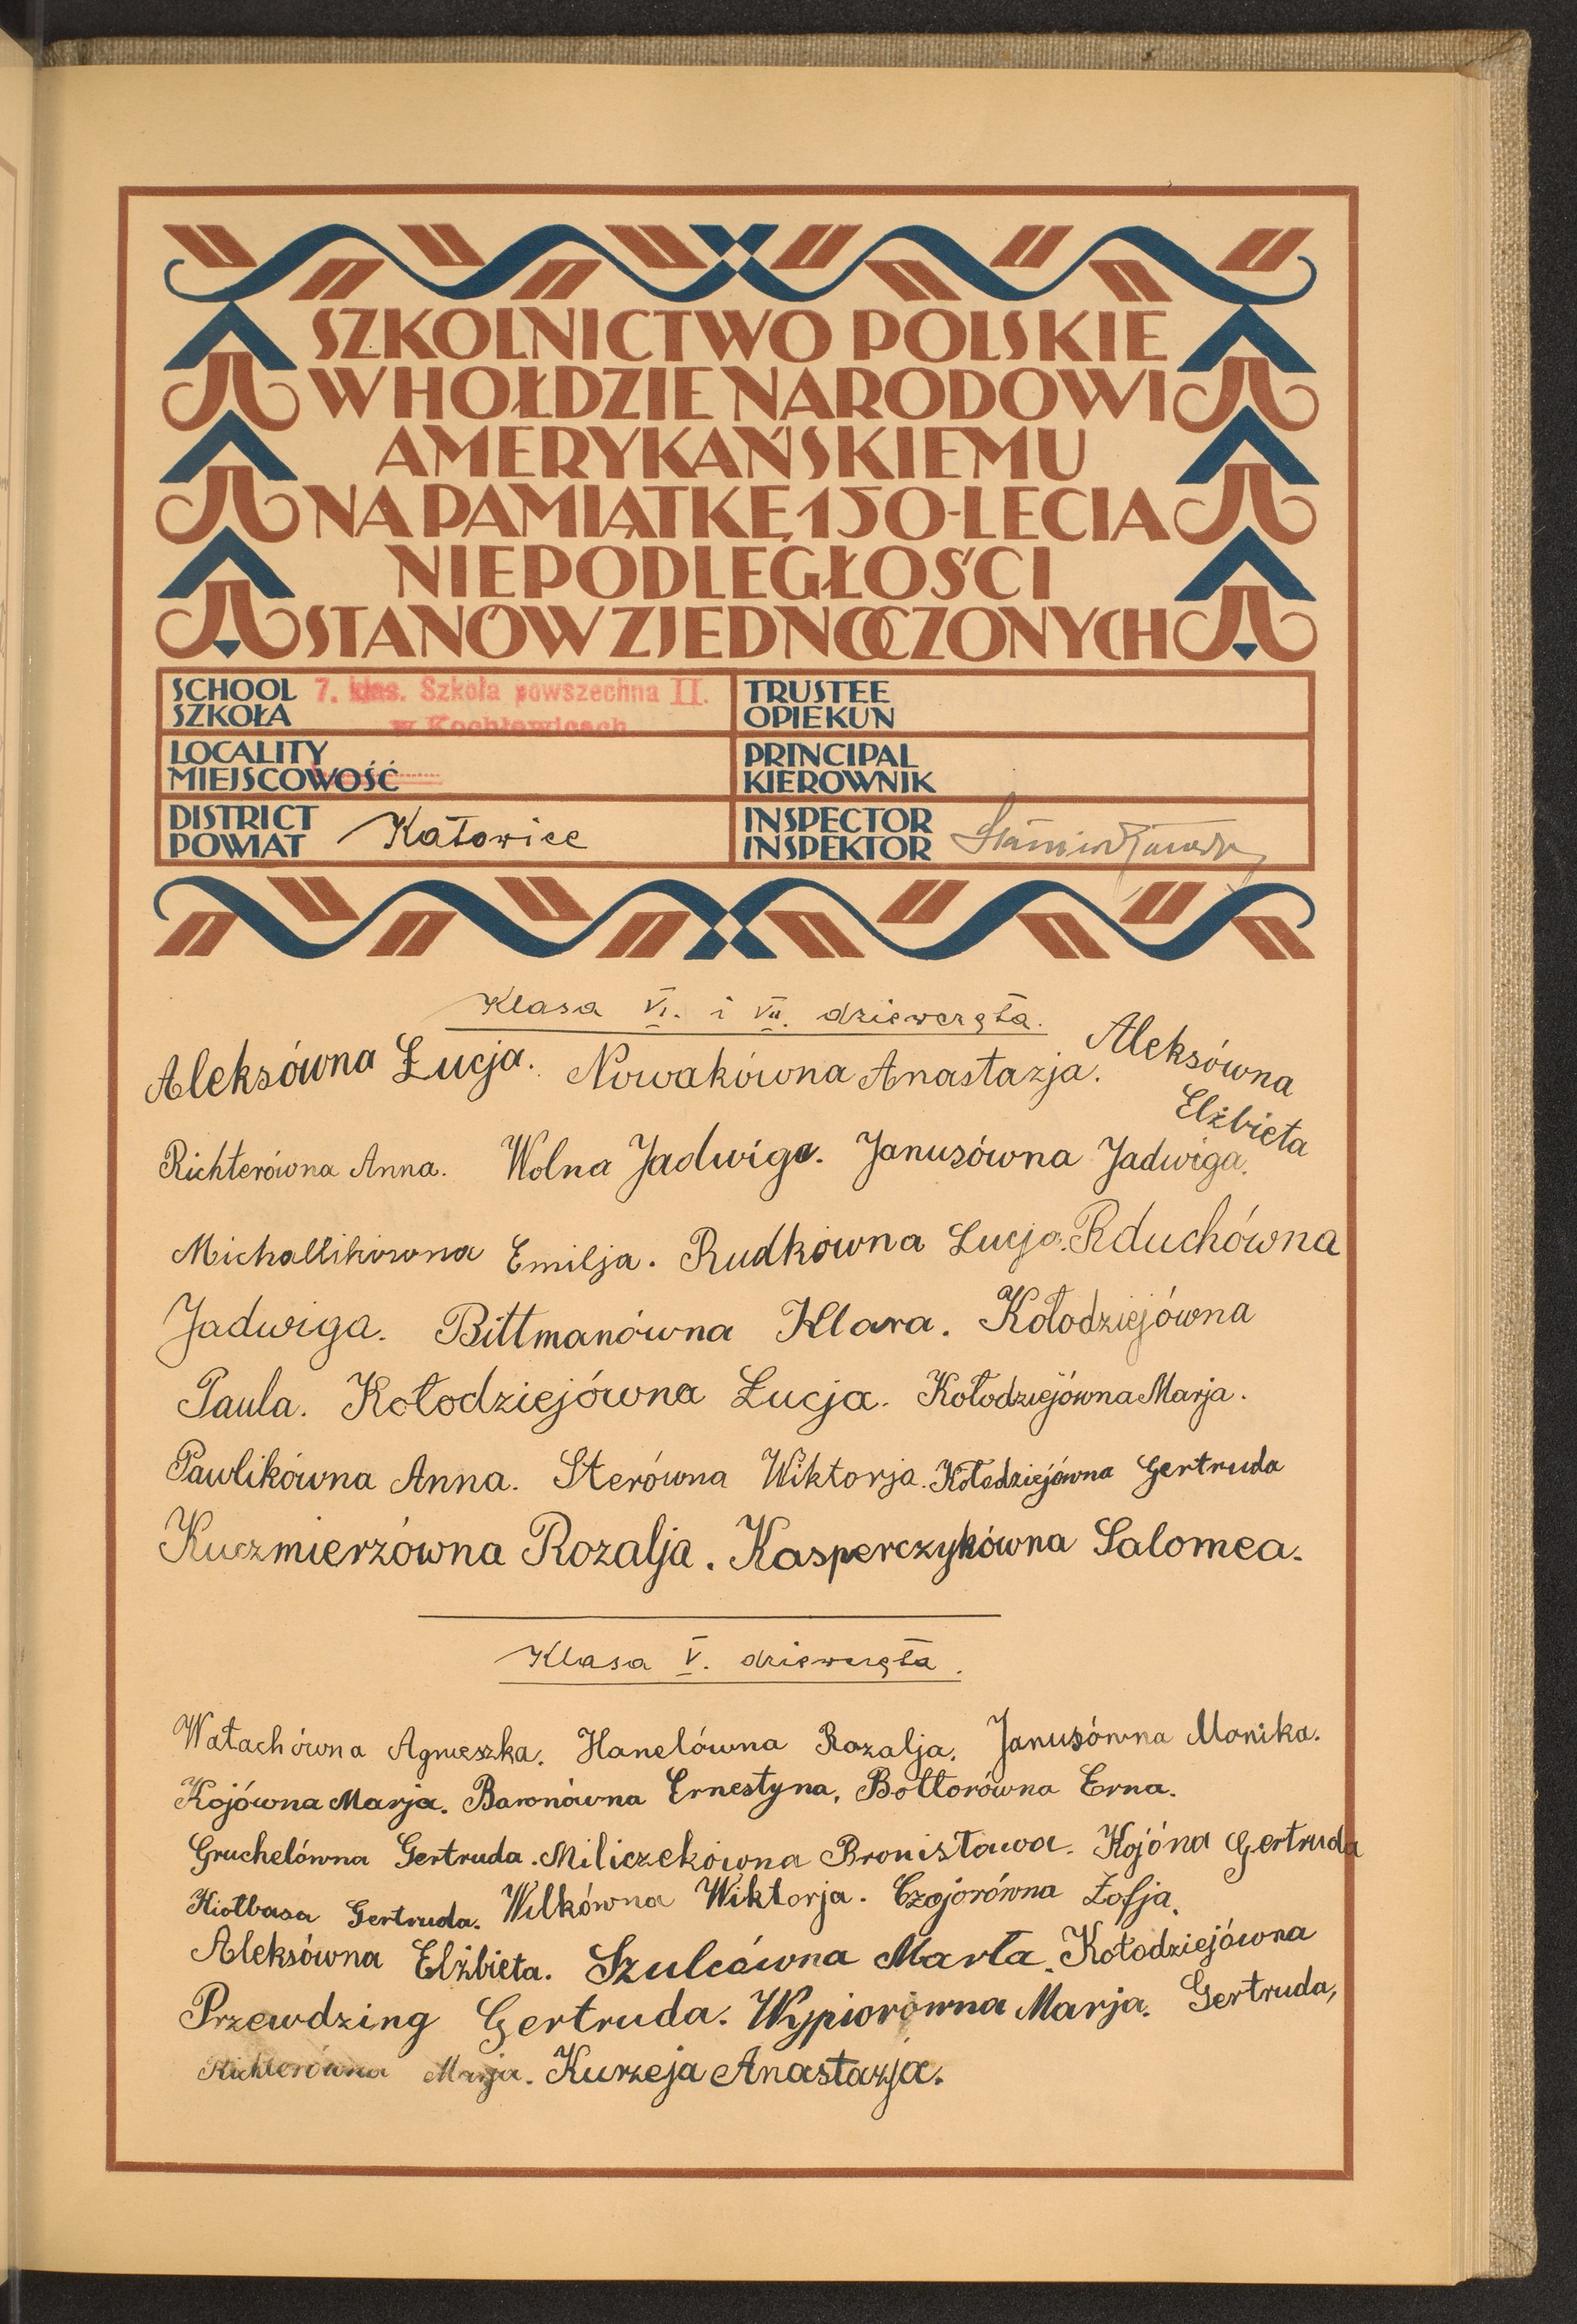 SZKOLNICTWO POLSKIE
W HOŁDZIE NARODOWI
AMERYKAŃSKIEMU
NA PAMIĄTKĘ 150-LECIA
NIEPODLEGŁOŚCI
STANÓW ZJEDNOCZONYCH
SCHOOL
SZKOŁA
7. klas. Szkoła powszechna II.
w Kochłowicach
TRUSTEE
OPIEKUN
LOCALITY
MIEJSCOWOŚĆ
PRINCIPAL
KIEROWNIK
DISTRICT
POWIAT
Katowice
INSPECTOR
INSPEKTOR
Klasa VI. i VII. dziewczęta.
Aleksówna Łucja. Nowakówna Anastazja. Aleksówna
Elżbieta
Richterówna Anna. Wolna Jadwiga. Janusówna Jadwiga.
Michallikówna Emilja. Rudkówna Łucja. Rduchówna
Jadwiga. Bittmanówna Klara. Kołodziejówna
Paula. Kołodziejówna Łucja. Kołodziejówna Marja.
Pawlikówna Anna. Sterówna Wiktorja. Kołodziejówna Gertruda
Kuczmierzówna Rozalja. Kasperczykówna Salomea.
Klasa V. dziewczęta.
Watachówna Agnieszka. Hanelówna Rozalja. Janusówna Monika.
Kojówna Marja. Baronówna Ernestyna, Bottorówna Erna.
Gruchelówna Gertruda. Miliczekówna Bronisława. Kojóna Gertruda
Kiołbasa Gertruda. Wilkówna Wiktorja. Czajorówna Zofja.
Aleksówna Elżbieta. Szulcówna Marta. Kołodziejówna
Przewdzing Gertruda. Wypiorówna Marja. Gertruda,
Richterówna Marja. Kurzeja Anastazja.